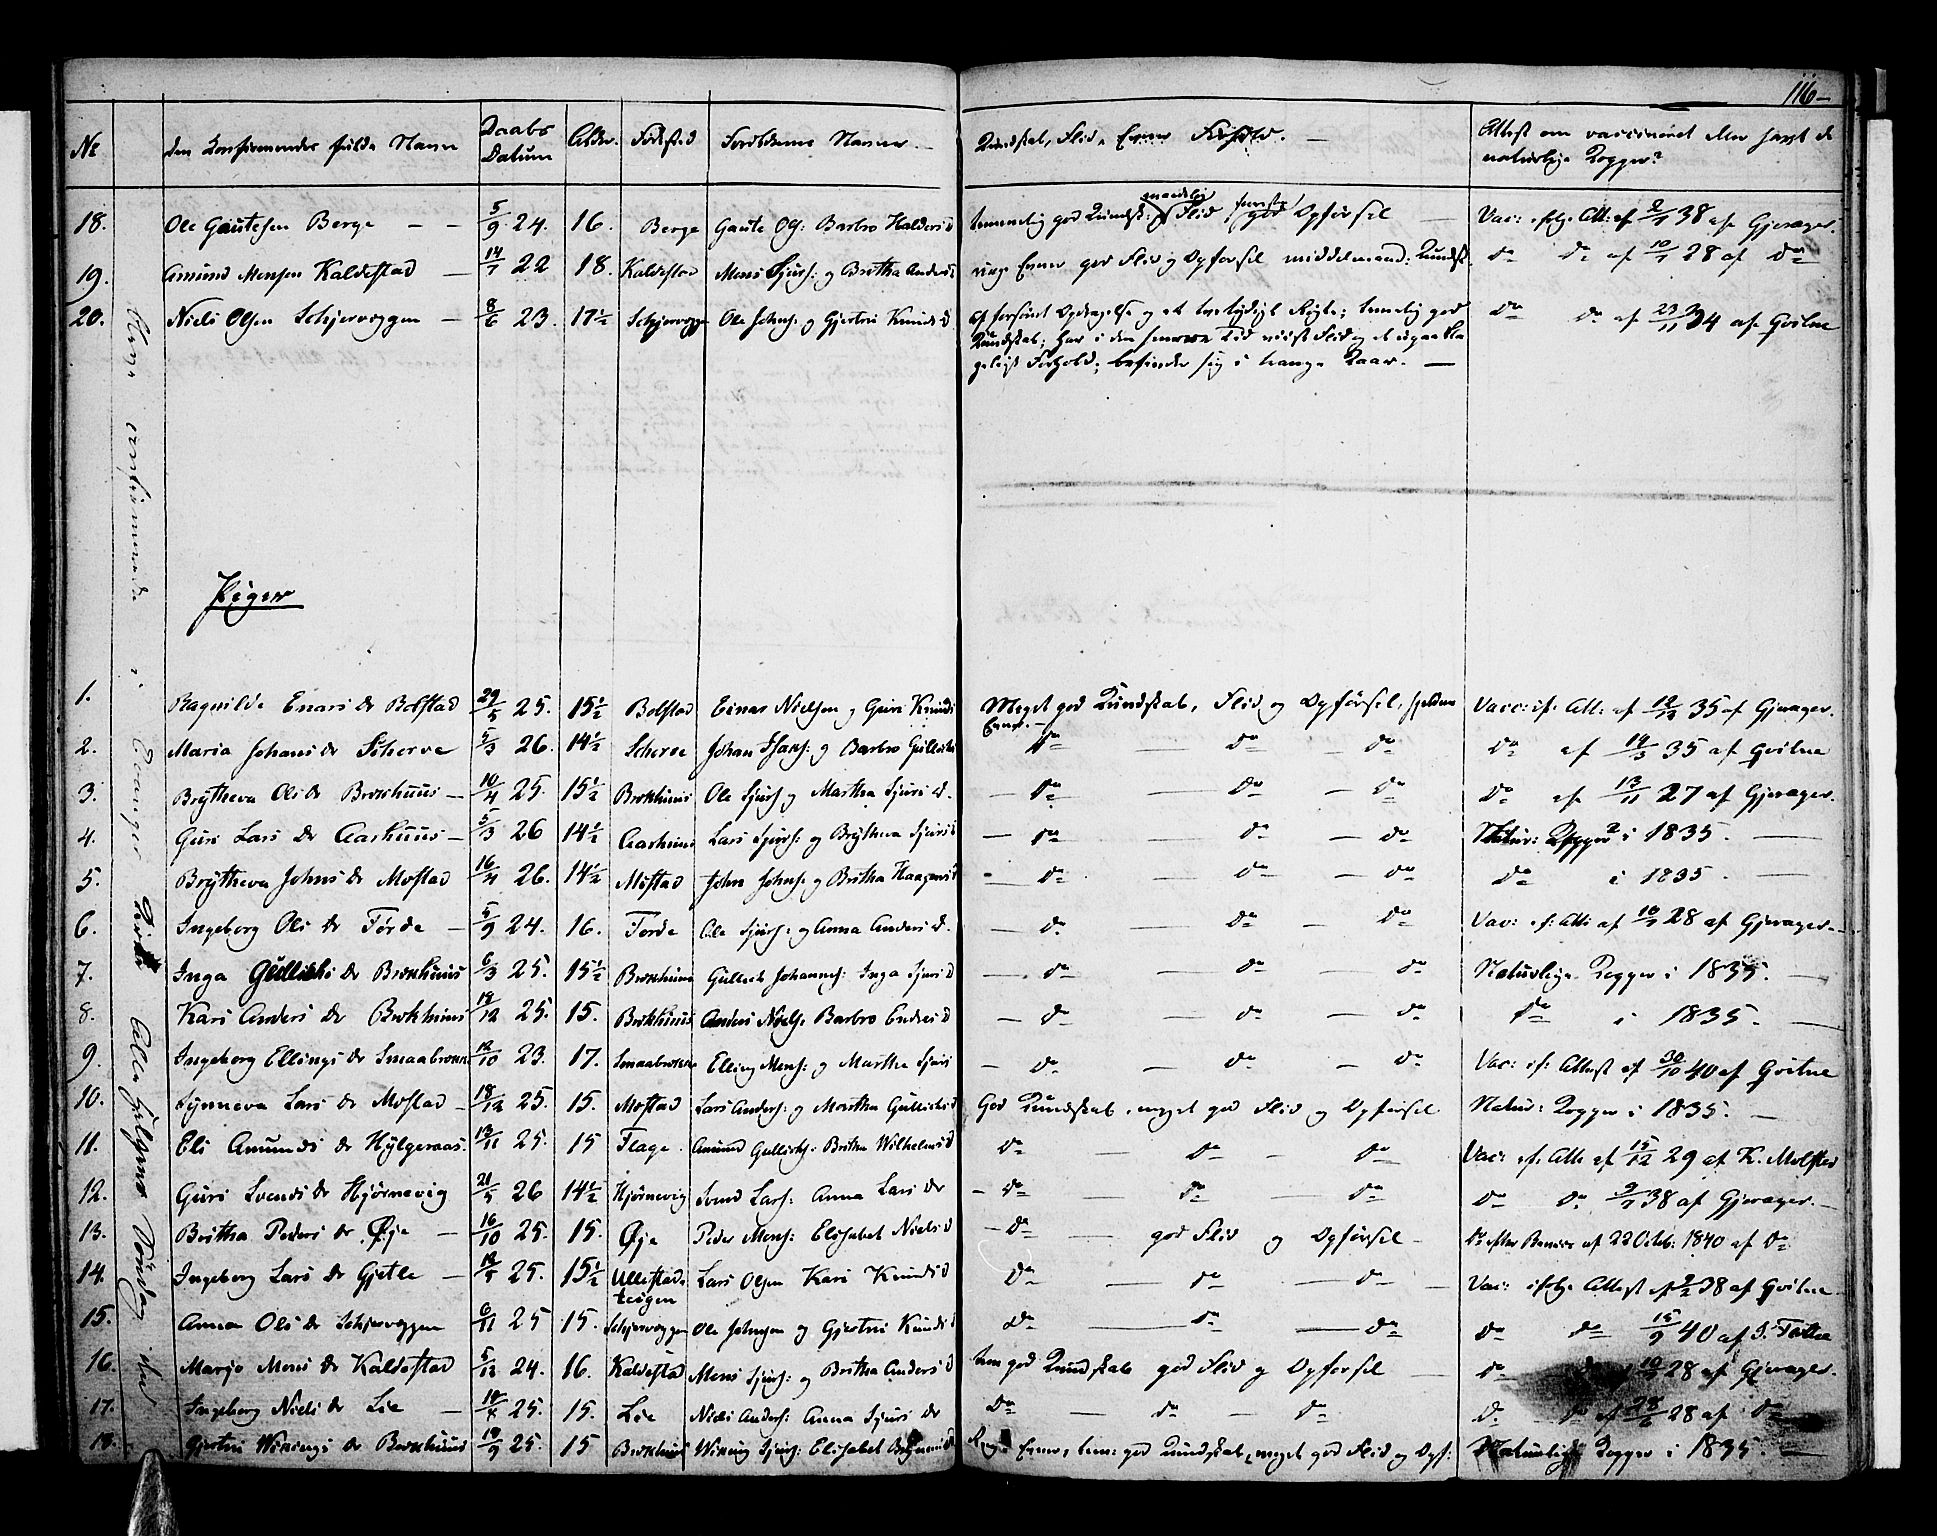 116-
No den Konfirmerendes fulde Navn Daabs Datum Alder. Fødested Forældrenes Navne. Kundskab, Flid, Evner Forhold. Attest om vaccineret eller havt de
naturlige Kopper?
18. Ole Gautesen Berge 5/9 24. 16. Berge Gaute Barbro Halders d temmelig god Kundsk: Flid god Opførsel Vac: ifølge Att: af 38 af Gjerager.
19. Amund Monsen Kaldestad 14/7 22 18. Kaldestad Mons Sjurs: og Britha Anders d ringe Evner god Flid og Opførsel middelmaad: Kundsk. do do af 10/7 28 af do
20. Niels Olsen Schjerveggen 8/6 23. 17½ Schjerveggen Ole Johns: og Gjertrui Knuds d Af forsømt Opdragelse og et tvetydigt Rygte; temelig god do do af 23/11 34 af Qvitne
Kundskab; har i den senere Tid viist Flid og et upaakla
geligt Forhold; befinder sig i trange Kaar.
Piger
1. Ragnilde Enars dr Bolstad 29/5 25. 15½ Bolstad Einar Nielsen og Guri Knuds Meget god Kundskab, Flid og Opførsel, sjelden Vacc: if: Att: af 12/12 35 af Gjerager.
Evner.
2. Maria Johans dr Scherve 5/3 26. 14½ Scherve Johan Isaks: og Barbro Gullichs do do do do af 19/3 35 af Qvitne
3. Brytheva Ols dr Brekhuus 10/4 25. 15½ Brekhuus Ole Sjurs og Martha Sjurs d. do do do do af 13/11 27 af Gjerager.
4. Guri Lars dr Aarhuus 5/3 26 14½ Aarhuus Lars Sjurs: og Brytheva Sjurs do do do Natur: Kopper i 1835.
5. Brytheva Johns dr Mostad 16/4 26. 14½ Mostad John Johns: og Britha Haagens do do do do i 1835.
6. Ingeborg Ols dr Førde 5/9 24. 16. Førde Ole Sjurs: og Anna Anders d. do do do Vac: if: Att: af 10/7 28 af Gjerager
7. Inga Gullichs dr Brekhuus 6/3 25. 15½ Brekhuus Gullech Johanns: Inga Sjurs d do do do Naturlige Kopper i 1835.
8. Kari Anders dr Brekhuus 18/12 25. 15. Brekhuus Anders Niels: Barbro Endres d do do do do i 1835.
9. Ingeborg Ellings dr Smaabrekke 12/10 23. 17. Smaabrekke Elling Mons: og Martha Sjurs do do do Vac: if: Attest af 30/10 40 af Qvitne
10. Synneva Lars dr Mostad 18/12 25. 15. Mostad Lars Anders: og Martha Gullichs d God Kundskab, meget god Flid og Opførsel Natur: Kopper i 1835.
11. Eli Amunds dr Hylgeraas. 13/11 25. 15 Flage Amund Gullichs: Britha Wilhelms d do do do Vac: if: Att: af 15/12 29 af K. Molster
12. Guri Svends dr Hjørnevig 21/5 26 14½ Hjørnevig Svend Lars: Anna Lars dr do do do do do 38 af Gjerager.
13. Britha Peders dr Øje 16/10 25. 15. Øje Peder Mons: Elisabet Niels d do god Flid og Opførsel do efter Beviis af 22 Octb: 1840 af do
14. Ingeborg Lars dr Gjetle 12/5 25. 15½ Ullestads Lars Olsen Kari Knuds d do do do Vac: ifølge Attest af 38 af Qvitne
teigen
15. Anna Ols dr Schjerveggen 6/11 25 15. Schjerveggen Ole Johnsen og Gjertrui Knuds d do do do do do 15/9 40 af
16. Marjo Mons dr Kaldestad 5/12 24. 16. Kaldestad Mons Sjurs: og Britha Anders d tem god Kundskab god Flid og Opførsel do 10/7 28 af Gjerager.
17. Ingeborg Niels dr Lie 25. 15. Lie Niels Anders: Anna Sjurs dr do do do do do af 28 af do
18. Gjertru Wikings dr Brekhuus 18/9 25. 15 Brekhuus Wiking Sjurs: Elisabet Ringe Evner, tem: god Kundskab, meget god Flid og Opf: Naturlige Kopper i 1835.
confirmerede i Evanger Kirke Allehelgens Søndag